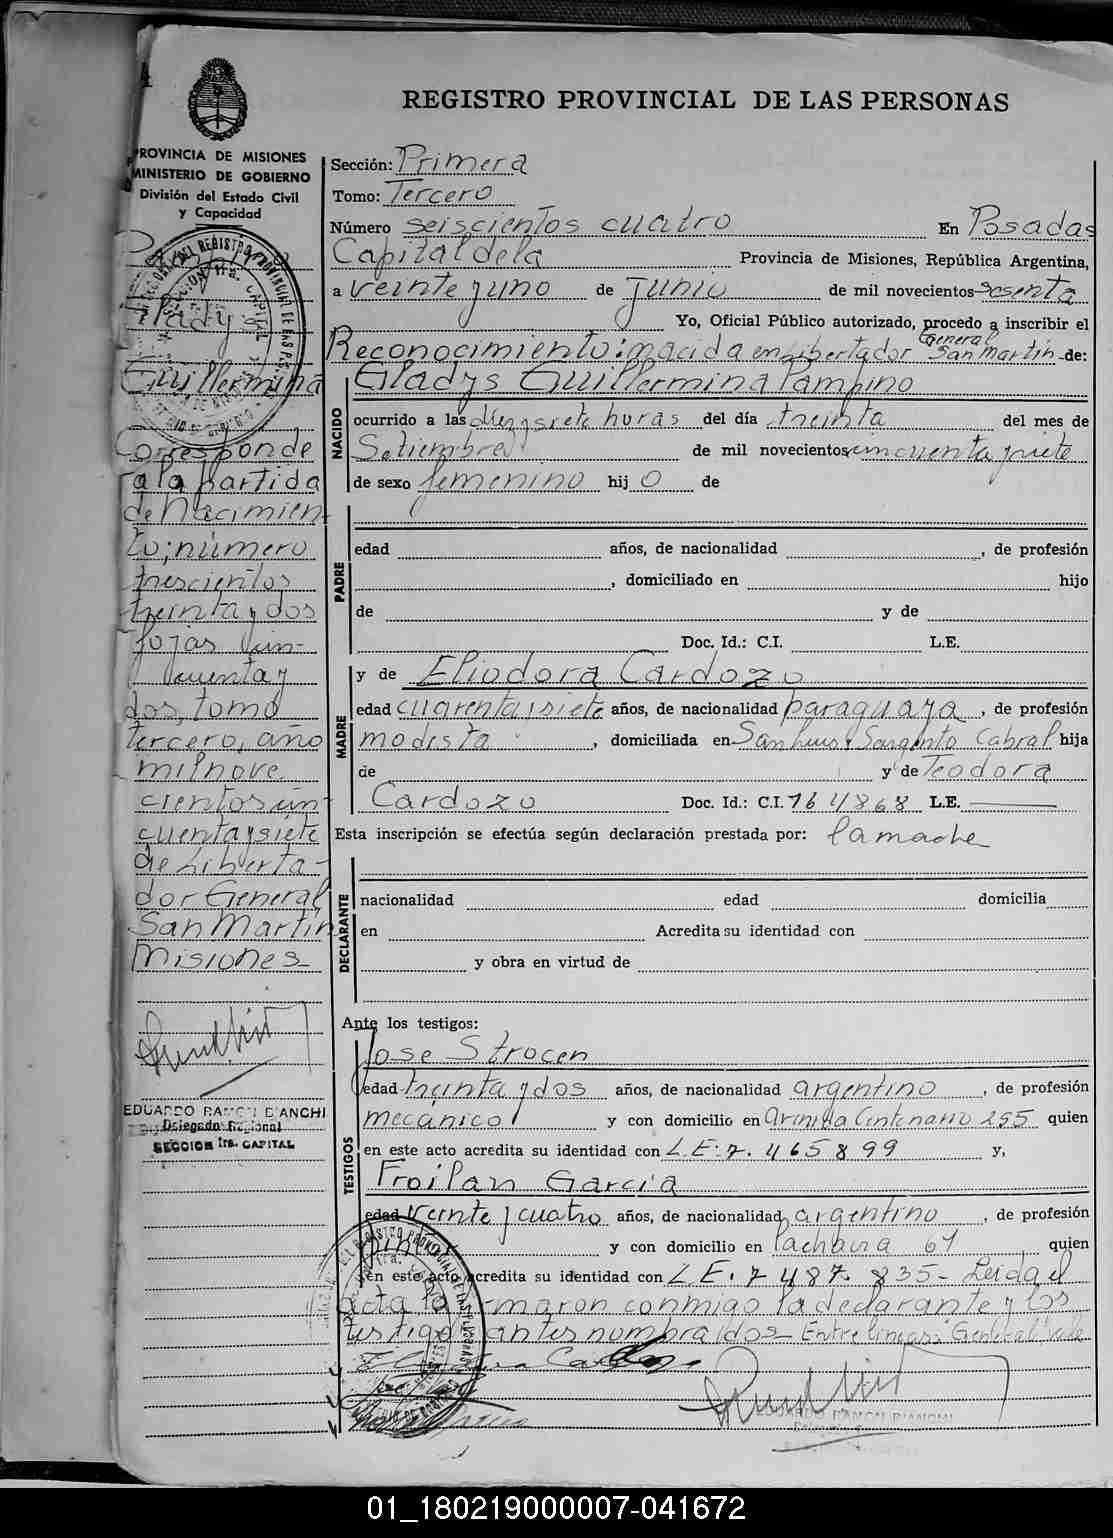 REGISTRO PROVINCIAL DE LAS PERSONAS
PROVINCIA DE MISIONES
MINISTERIO DE GOBIERNO
División del Estado Civil
y Capacidad
Gladys
Guillermina
Corresponde
a la partida
de Nacimien
to; número
trescientos
treinta y dos
fojas cin-
cuenta y
dos, tomo
tercero, año
mil nove
cientos cin-
cuenta y siete
de Liberta-
dor General
San Martín
Misiones-
EDUARDO RAMON BIANCHI
Delegado Regional
SECCION 1ra. CAPITAL
Sección: Primera
Tomo: Tercero
Número seiscientos cuatro En Posadas
Capital de la Provincia de Misiones, República Argentina,
a veinte y uno de Junio de mil novecientos sesenta
Yo, Oficial Público autorizado, procedo a inscribir el
General
Reconocimiento: nacida en Libertador San Martín de:
NACIDO
Gladys Guillermina Pampino
ocurrido a las diez y siete horas del día treinta del mes de
Setiembre de mil novecientos cincuenta y siete
de sexo femenino hij o de
PADRE
edad años, de nacionalidad , de profesión
, domiciliado en hijo
de y de
Doc. Id.: C.I. L.E.
MADRE
y de Eliodora Cardozo
edad cuarenta y siete años, de nacionalidad paraguaya , de profesión
modista , domiciliada en San Luis y Sargento Cabral hija
de y de Teodora
Cardozo Doc. Id.: C.I. 164868 L.E.
Esta inscripción se efectúa según declaración prestada por: la madre
DECLARANTE
nacionalidad edad domicilia
en Acredita su identidad con
y obra en virtud de
Ante los testigos:
TESTIGOS
Jose Strocen
edad treinta y dos años, de nacionalidad argentino , de profesión
mecánico y con domicilio en Avenida Centenario 255 quien
en este acto acredita su identidad con L.E: 7. 465899 y,
Froilan Garcia
edad veinte y cuatro años, de nacionalidad argentino , de profesión
y con domicilio en 61 quien
en este acto acredita su identidad con L E. 7 487. 835- Leida el
acta la firmaron conmigo la declarante y los
testigos antes nombrados- Entre lineas: General Vale
EDUARDO RAMON BIANCHI
01_180219000007-041672